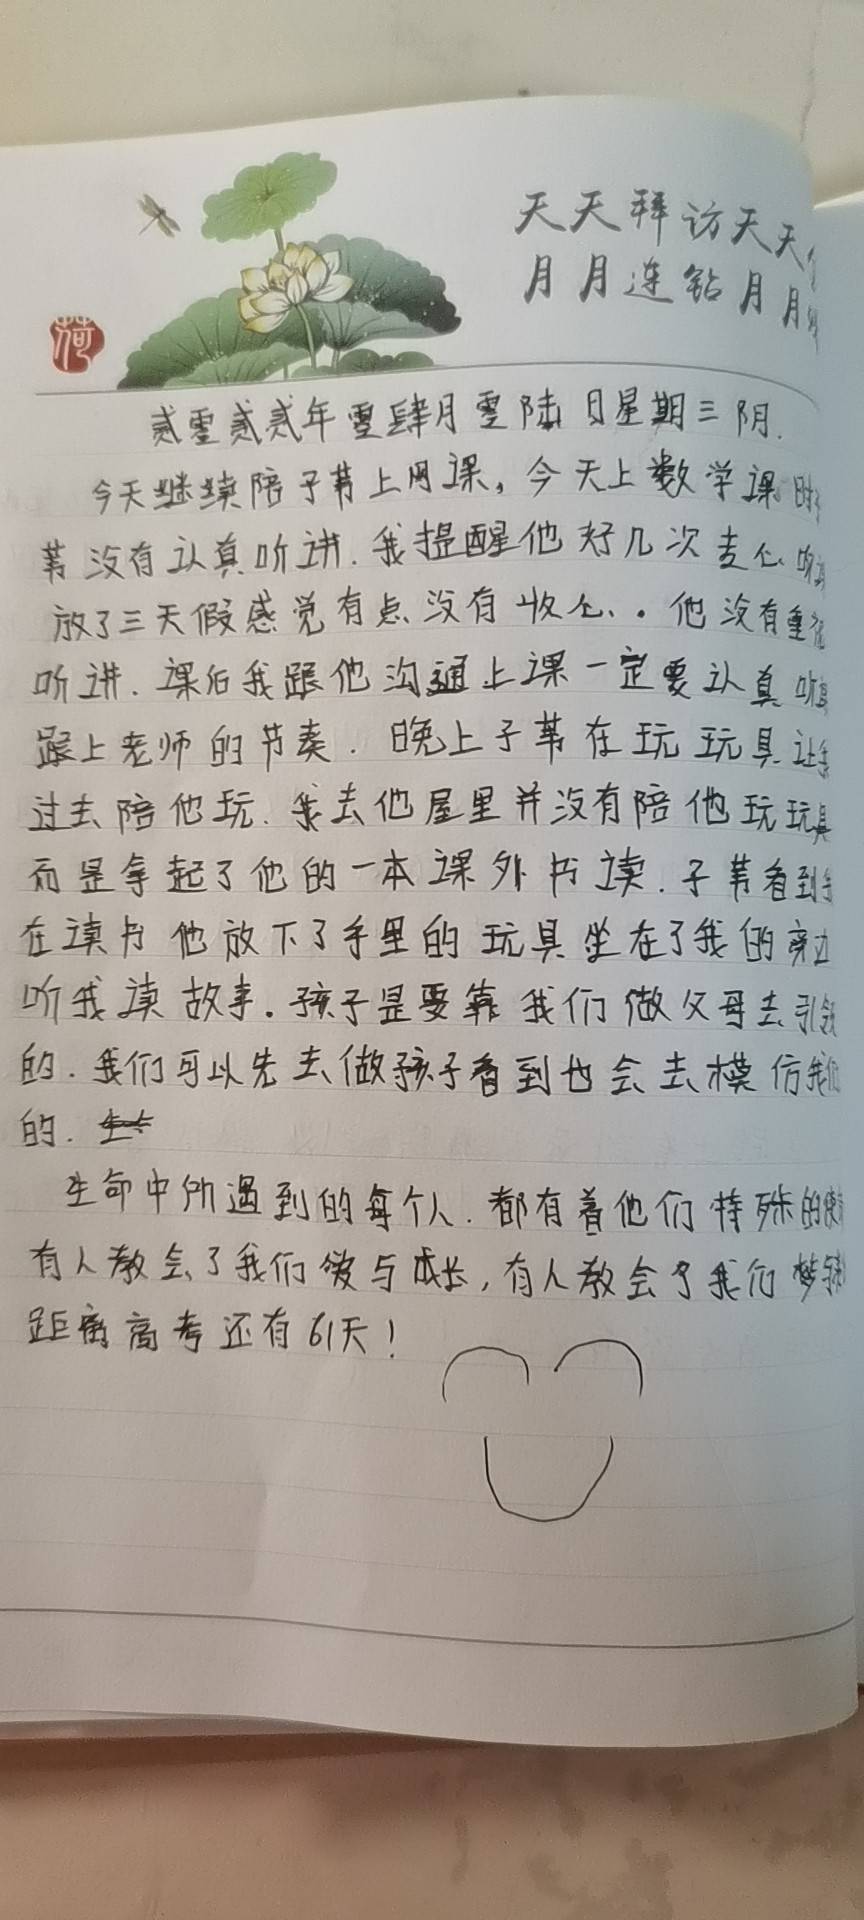 荷
天天拜访天天
月月连钻月月
贰零贰贰年零肆月零陆日星期三阴.
今天继续陪子苇上网课。今天上数学课时
苇没有认真听讲.我提醒他好几次专心听
放了三天假感觉有点没有收心.。他没有重视
听讲.课后我跟他沟通上课一定要认真听
跟上老师的节奏.晚上子苇在玩玩具让我
过去陪他玩.我去他屋里并没有陪他玩玩具
而是拿起了他的一本课外书读.子苇看到我
在读书他放下了手里的玩具坐在了我的旁边
听我读故事。孩子是要靠我们做父母去引领
的.我们可以先去做孩子看到也会去模仿我们
的.
生命中所遇到的每个人.都有着他们特殊的使
有人教会了我们爱与成长,有人教会了我们梦
距离高考还有61天!